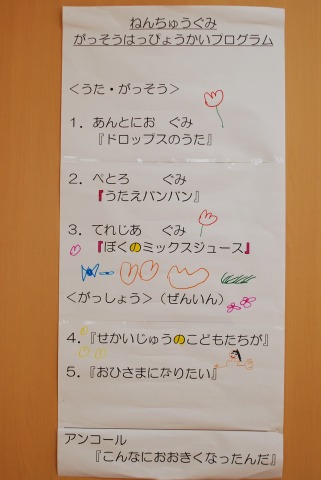 ねんちゅうぐみ
がっそうはっぴょうかいプログラム
＜うた・がっそう＞
１．あんとにお　ぐみ
『ドロップスのうた』
２．ぺとろ　　ぐみ
『うたえバンバン』
３．てれじあ　ぐみ
『ぼくのミックスジュース』
＜がっしょう＞（ぜんいん）
４．『せかいじゅうのこどもたちが』
５．『おひさまになりたい』
アンコール
『こんなにおおきくなったんだ』